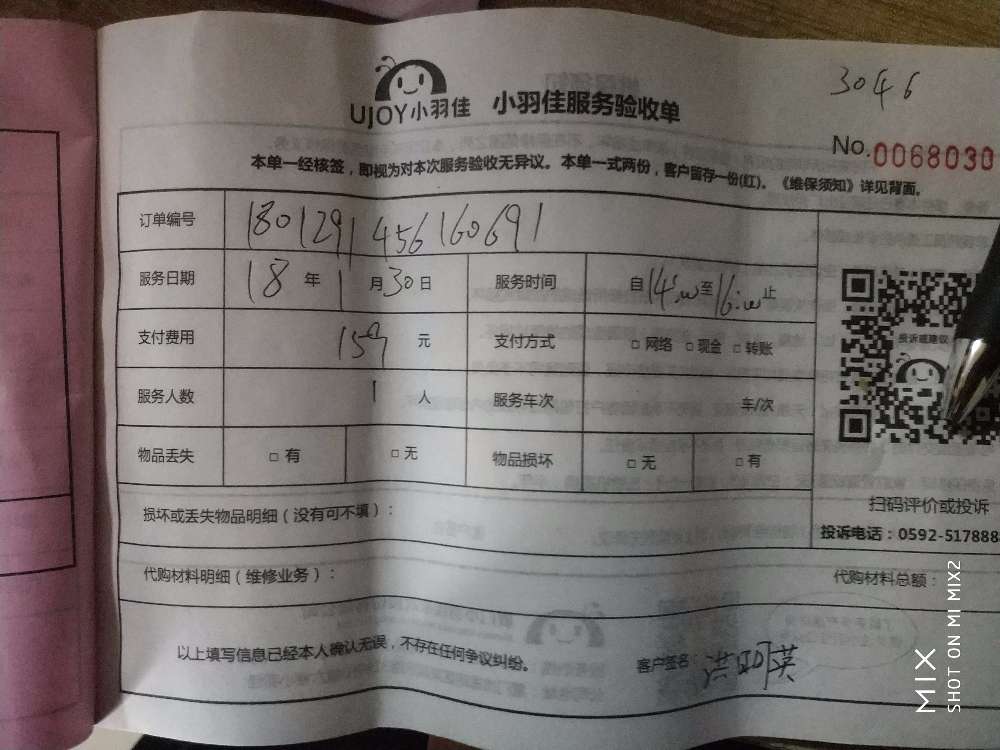 3046
UJOY小羽佳 小羽佳服务验收单
No.0068030
本单一经核签，即视为对本次服务验收无异议。本单一式两份，客户留存一份(红)。《维保须知》详见背面。
订单编号 180129145616069​1
服务日期 18 年 1 月 30 日 服务时间 自 14:00 至 16:00 止
支付费用 159 元 支付方式 □ 网络 □ 现金 □ 转账
投诉或建议
服务人数 1 人 服务车次 车/次
物品丢失 □ 有 □ 无 物品损坏 □ 无 □ 有
扫码评价或投诉
损坏或丢失物品明细（没有可不填）：
投诉电话：0592-517888
代购材料明细（维修业务）： 代购材料总额：
以上填写信息已经本人确认无误，不存在任何争议纠纷。 客户签名：洪明英
MIX
SHOT ON MI MIX2